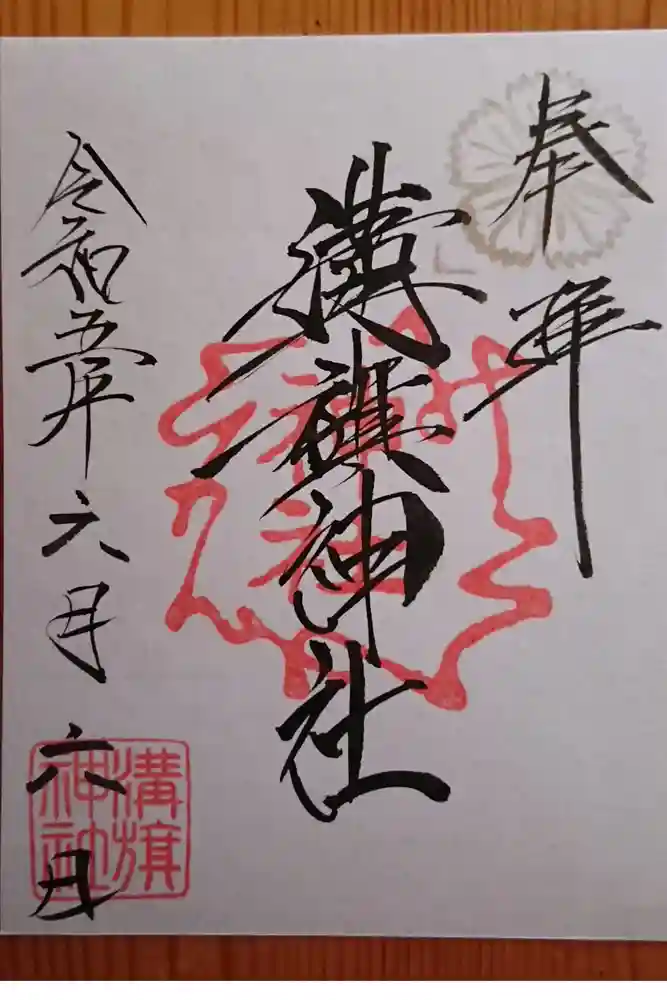 奉拝
溝旗神社
令和五年六月六日
溝旗
神社